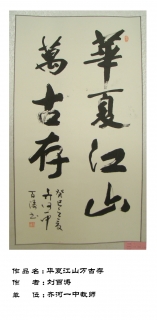 華夏江山
萬古存
癸巳之夏
齐河一中
百涛书
作品名：华夏江山万古存
作　者：刘百涛
单　位：齐河一中教师